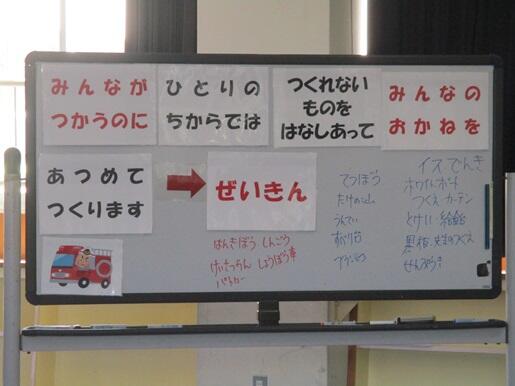 みんなが
つかうのに
ひとりの
ちからでは
つくれない
ものを
はなしあって
みんなの
おかねを
あつめて
つくります
ぜいきん
けいさつかん しょうぼう車
パトカー
てつぼう
たけのこ山
うんてい
すべり台
ブランコ
イス でんき
ホワイトボード
つくえ カーテン
とけい 給食
黒板 先生のつくえ
せんぷうき